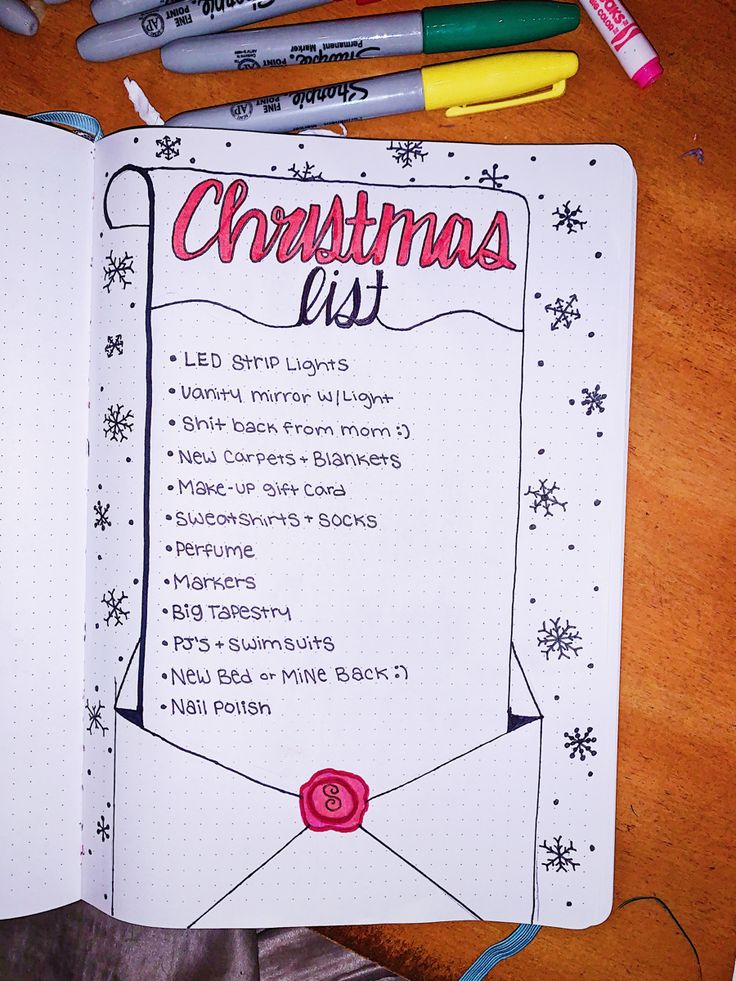 Sharpie
FINE POINT
Permanent Marker
Sharpie.
FINE POINT
AP
Sharpie.
FINE POINT
AP
Christmas
list
• LED Strip Lights
• Vanity mirror w/Light
• Shit back from mom :)
• New Carpets + Blankets
• Make-up gift Card
• Sweatshirts + Socks
• Perfume
• Markers
• Big Tapestry
• PJ's + Swimsuits
• New Bed or Mine Back :)
• Nail Polish
S